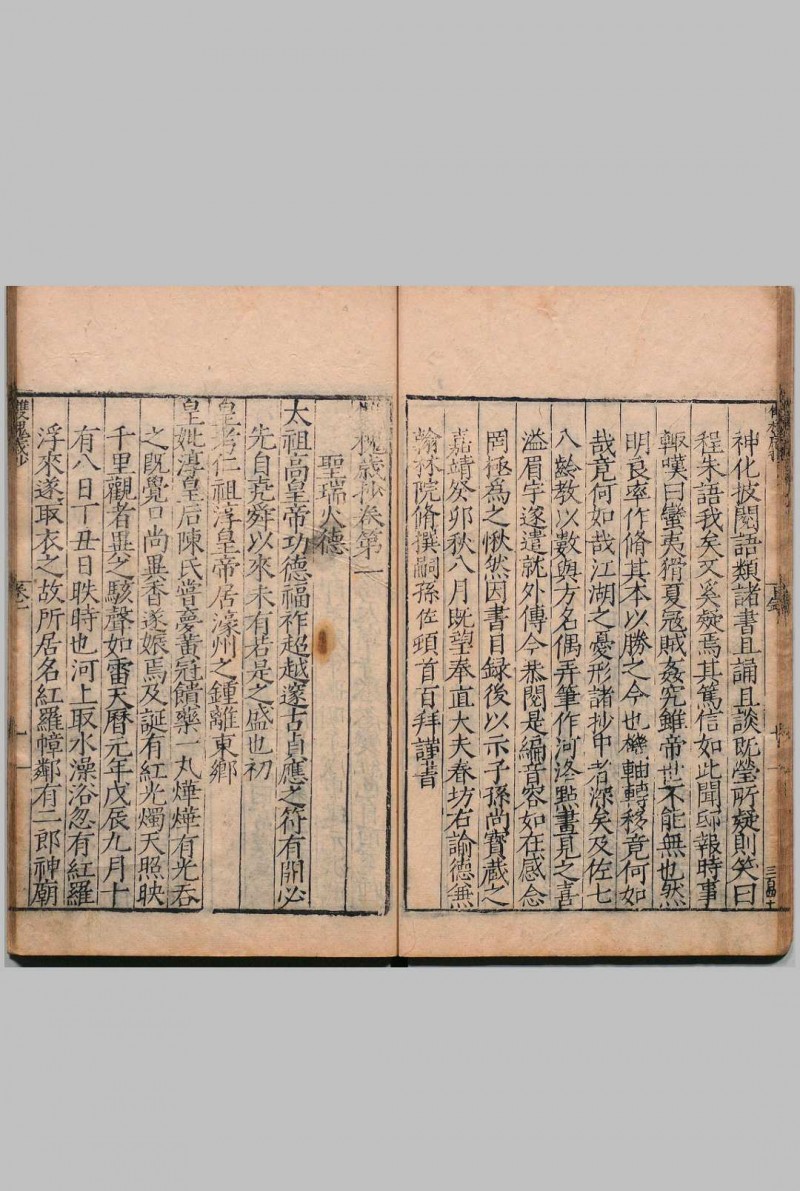 神化披閱語類諸書且誦且談既瑩所疑則笑曰
程朱語我矣又奚疑焉其篤信如此聞邸報時事
輙嘆曰蠻夷猾夏冦賊姦宄雖帝世不能無也然
明良率作脩其本以勝之今也機軸轉移竟何如
哉竟何如哉江湖之憂形諸抄中者深矣及佐七
八齡教以數與方名偶弄筆作河洛點畫見之喜
溢眉宇遂遣就外傳今恭閱是編音容如在感念
罔極爲之愀然因書目録後以示子孫尚寳蔵之
嘉靖癸卯秋八月既望奉直大夫春坊右諭德兼
翰林院脩撰嗣孫佐頓首百拜謹書
槐歳抄卷第一
聖瑞火德
太祖高皇帝功德福祚超越邃古貞應之符有開必
先自堯舜以來未有若是之盛也初
皇考仁祖淳皇帝居濠州之鍾離東鄉
皇妣淳皇后陳氏嘗夢黃冠饋藥一丸燁燁有光吞
之既覺口尚異香遂娠焉及誕有紅光燭天照映
千里觀者異之駭聲如雷天曆元年戊辰九月十
有八日丁丑日昳時也河上取水澡浴忽有紅羅
浮來遂取衣之故所居名紅羅幛鄰有二郎神廟
雙槐歲抄
卷一